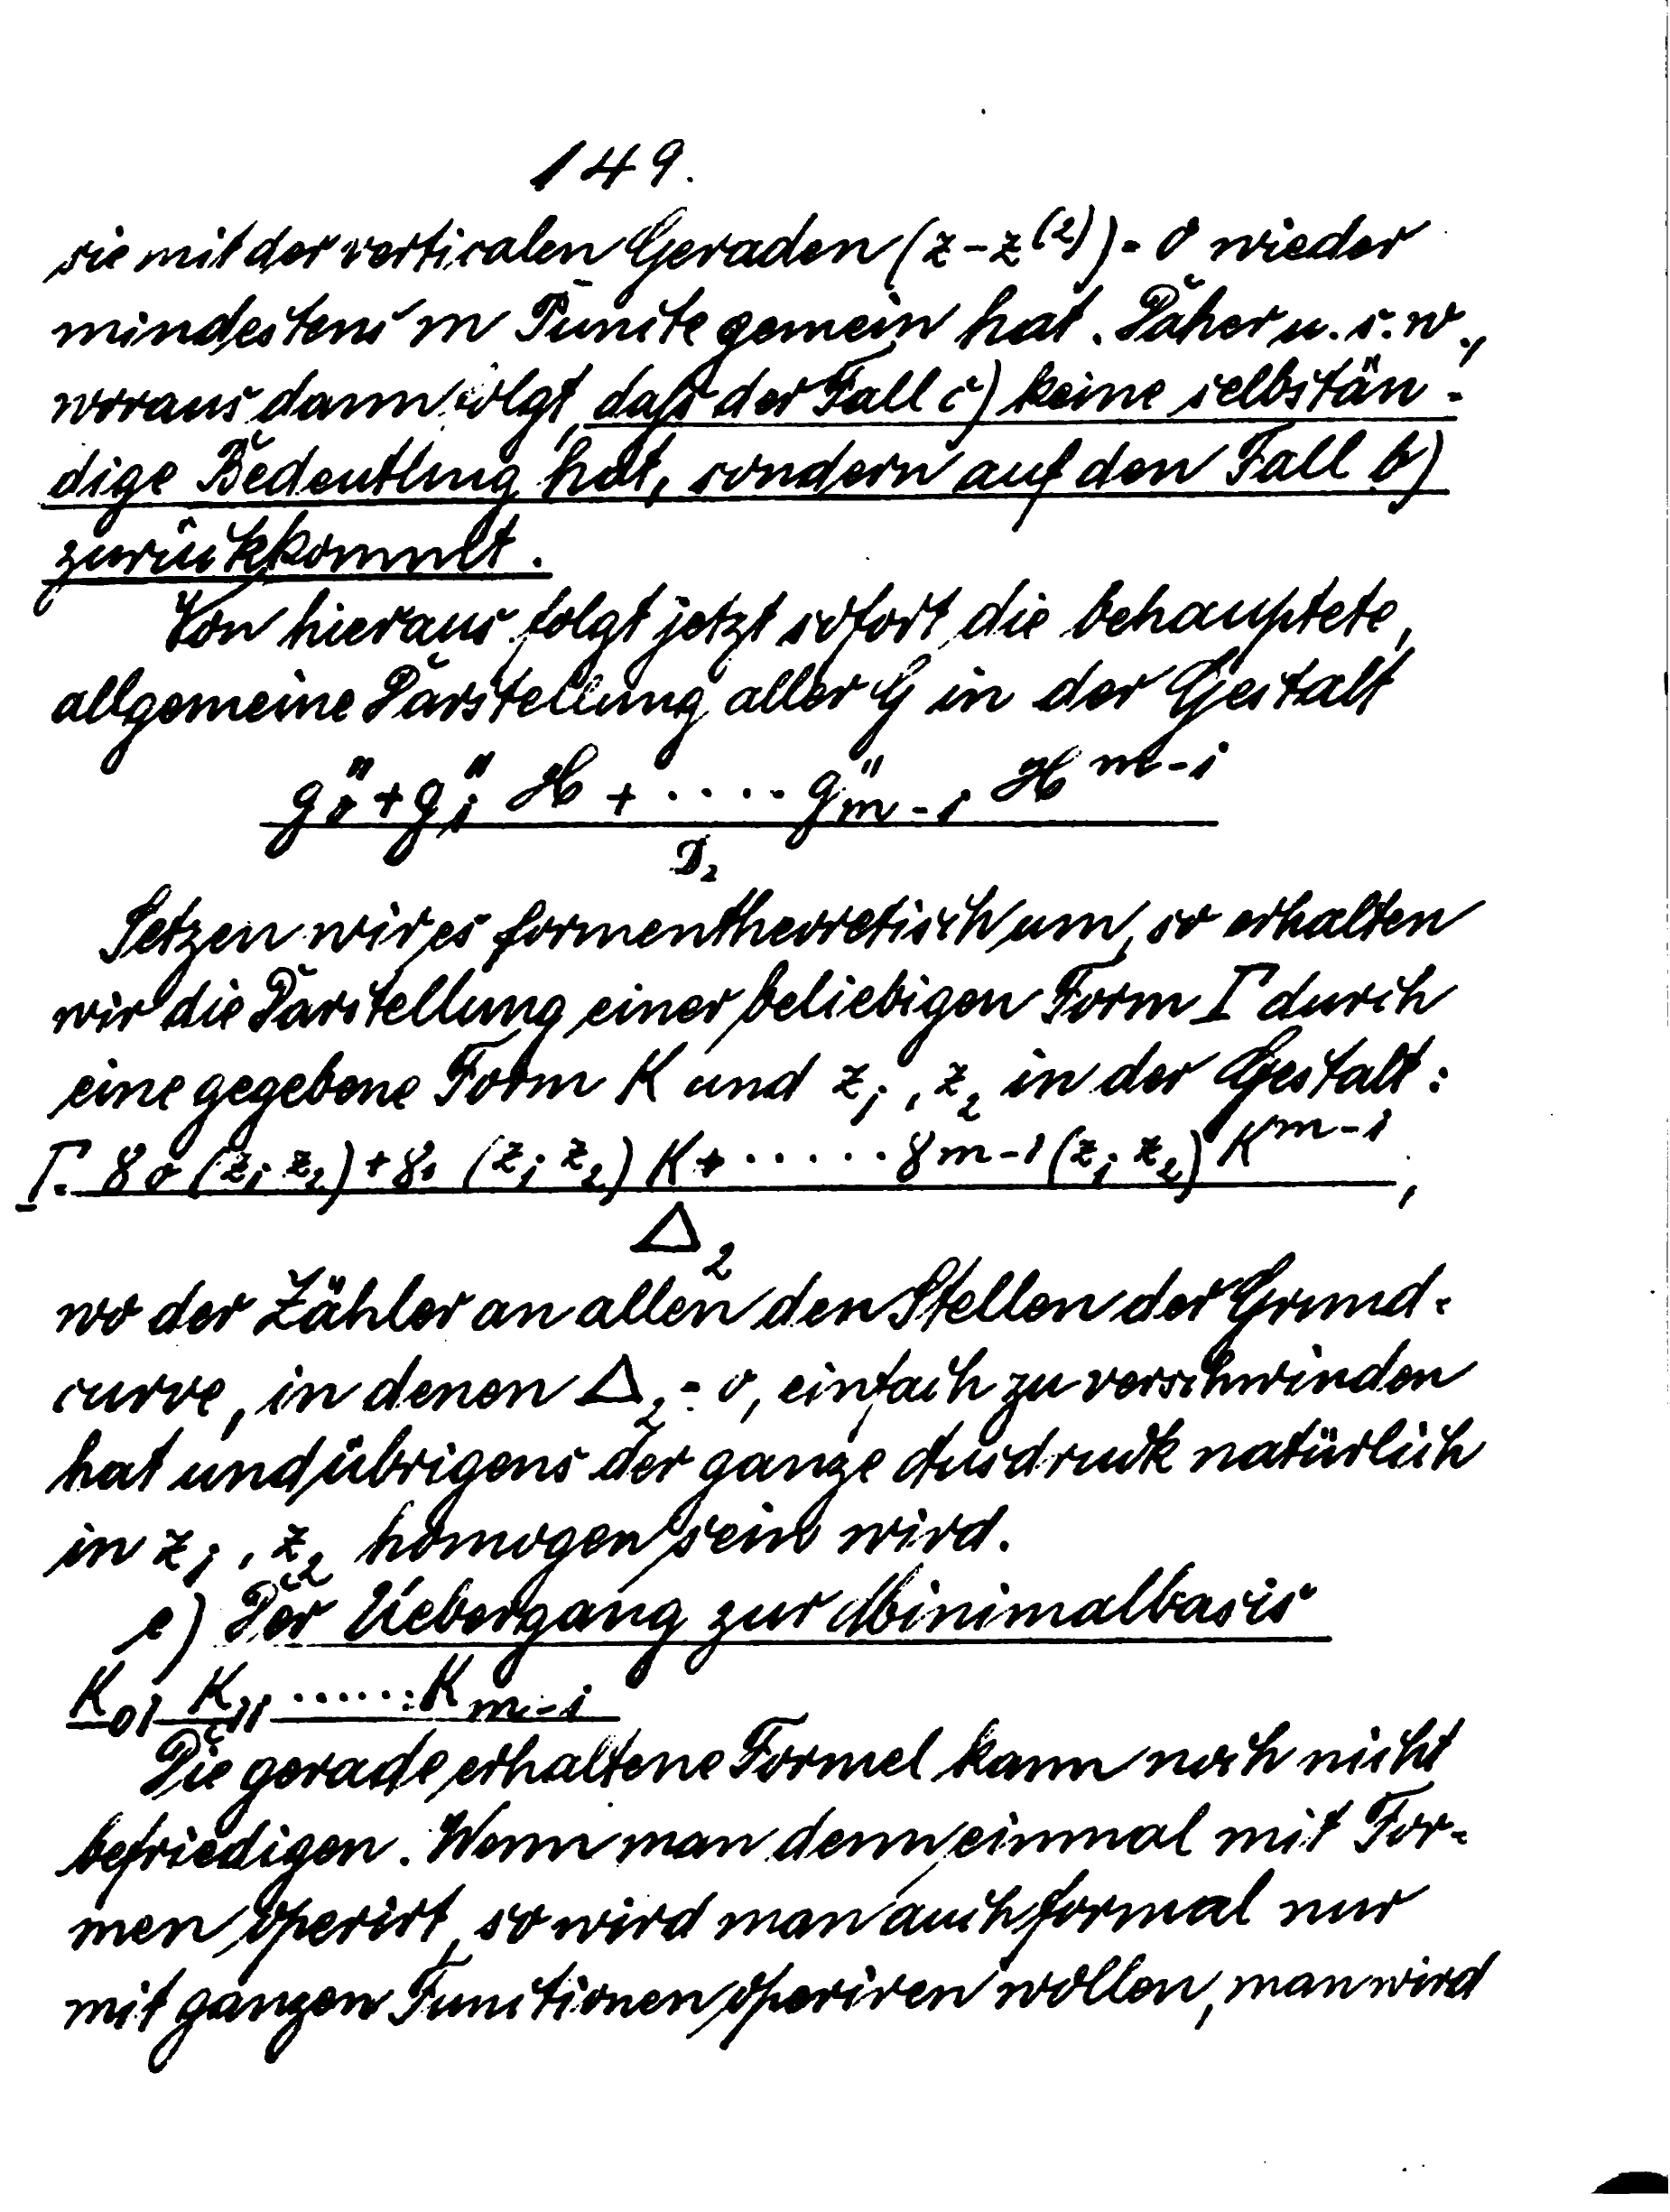 149.
sie mit der verticalen Geraden (z - z⁽²⁾) = 0 wieder
mindestens m Puncte gemein hat. Daher u. s. w.,
woraus dann folgt, daß der Fall c) keine selbstän-
dige Bedeutung hat, sondern auf den Fall b)
zurückkommt.
Von hieraus folgt jetzt sofort die behauptete,
allgemeine Darstellung aller G in der Gestalt
g₀" + g₁" H + ····· g"ₘ₋₁ Hᵐ⁻¹
D₂
Setzen wir es formentheoretisch um, so erhalten
wir die Darstellung einer beliebigen Form Γ durch
eine gegebene Form K und z₁, z₂ in der Gestalt:
Γ = γ₀ (z₁ z₂) + γ₁ (z₁ z₂) K + ······ γₘ₋₁ (z₁ z₂) Kᵐ⁻¹,
Δ₂
wo der Zähler an allen den Stellen der Grund-
curve, in denen Δ₂ = 0, einfach zu verschwinden
hat und übrigens der ganze Ausdruck natürlich
in z₁, z₂ homogen sein wird.
e) Der Uebergang zur Minimalbasis
K₀, K₁, ······ Kₘ₋₁
Die gerade erhaltene Formel kann noch nicht
befriedigen. Wenn man denn einmal mit For-
men operirt, so wird man auch formal nur
mit ganzen Functionen operiren wollen, man wird